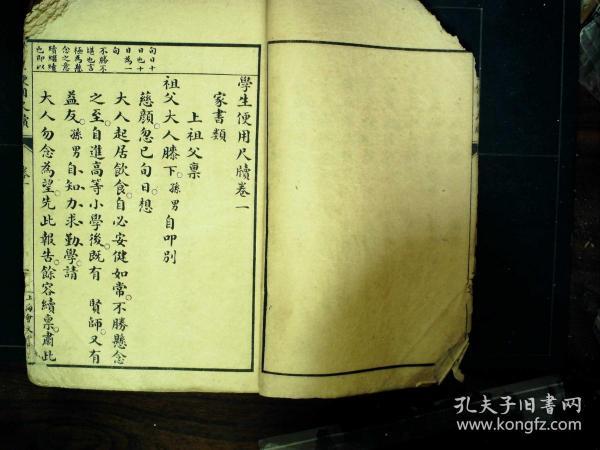 學生便用尺牘卷一
家書類
上祖父稟
祖父大人膝下孫男自叩別
慈顏忽已旬日想
大人起居飲食自必安健如常不勝懸念
之至自進高等小學後既有 賢師又有
益友孫男自知力求勤學請
大人勿念為望先此報告餘容續稟肅此
旬日十
日也十
日為一
旬
不勝不
堪也言
極為懸
念之意
續繼續
也即以
上海會文
孔夫子旧書网
www.kongfz.com